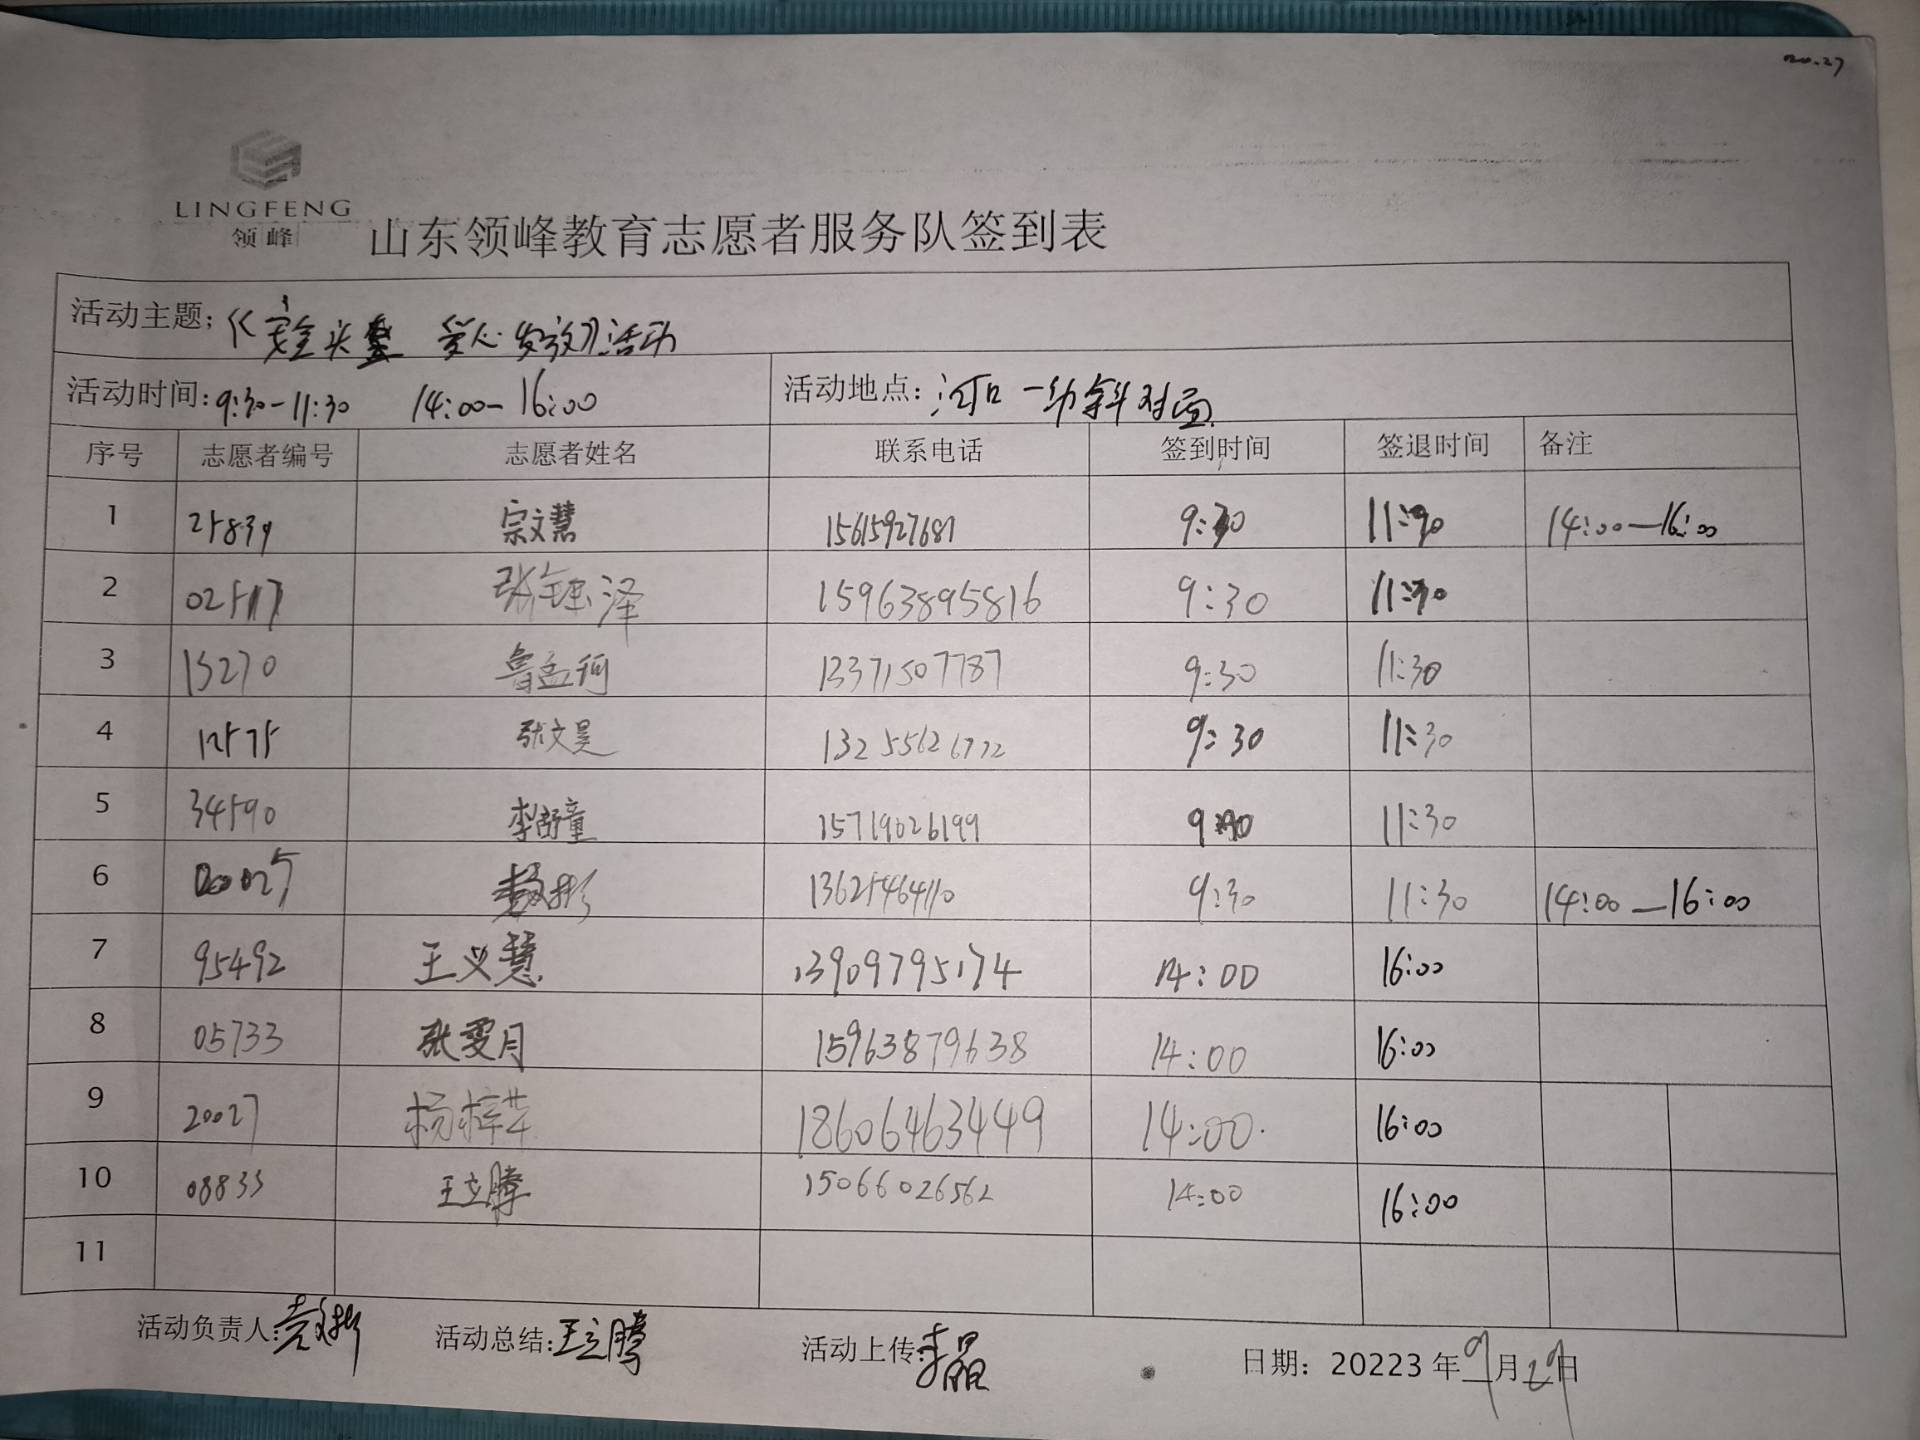 LINGFENG
领峰
山东领峰教育志愿者服务队签到表
活动主题：《安全头盔 爱心发放》活动
活动时间：9:30-11:30 14:00-16:00 活动地点：河口一幼斜对面
序号 志愿者编号 志愿者姓名 联系电话 签到时间 签退时间 备注
1 25839 宗文慧 15615927681 9:30 11:30 14:00—16:00
2 02517 张钰泽 15963895816 9:30 11:30
3 15270 鲁孟珂 13371507787 9:30 11:30
4 12575 张文昊 13255626772 9:30 11:30
5 34590 李舒童 15719626199 9:30 11:30
6 20025 13625464110 9:30 11:30 14:00—16:00
7 95492 王义慧 13909795174 14:00 16:00
8 05733 张雯月 15963879638 14:00 16:00
9 20027 杨梓艺 18606463449 14:00 16:00
10 08833 王立腾 15066026562 14:00 16:00
11
活动负责人： 活动总结：王立腾 活动上传：李晶 日期：20223年9月29日